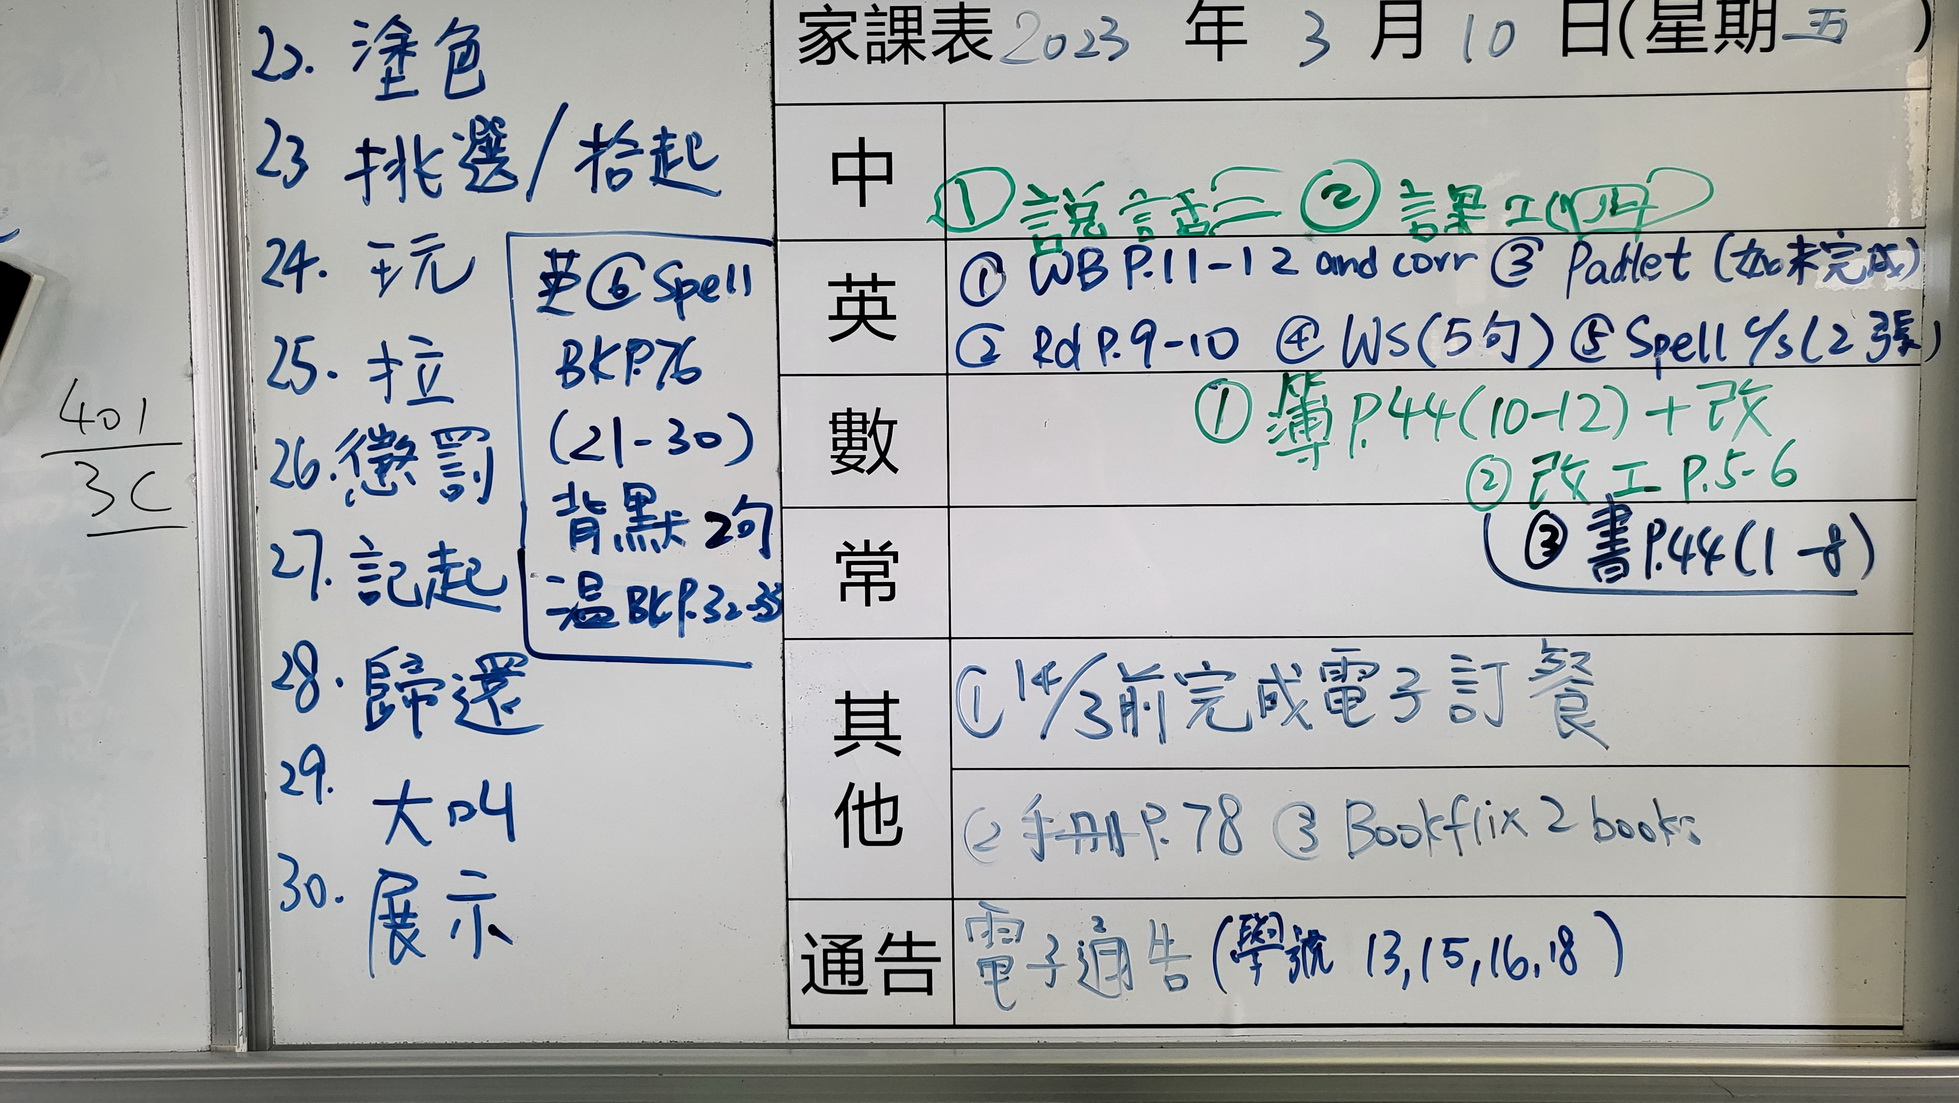 401
3C
22. 塗色
23 挑選/拾起
24. 玩
25. 拉
26. 懲罰
27. 記起
28. 歸還
29. 大叫
30. 展示
英⑥ Spell
BK P.76
(21-30)
背默2句
溫BK P.32-33
家課表 2023 年 3 月 10 日(星期五)
中
① 說話三 ② 課工(四)
英
① WB P.11-12 and corr ③ Padlet (如未完成)
② Rd P.9-10 ④ WS(5句) ⑤ Spell c/s(2張)
數
① 簿 P.44(10-12)+改
② 改工 P.5-6
常
③ 書P.44(1-8)
其他
① 14/3前完成電子訂餐
② 手冊P.78 ③ Bookflix 2 books
通告
電子通告(學號 13,15,16,18)